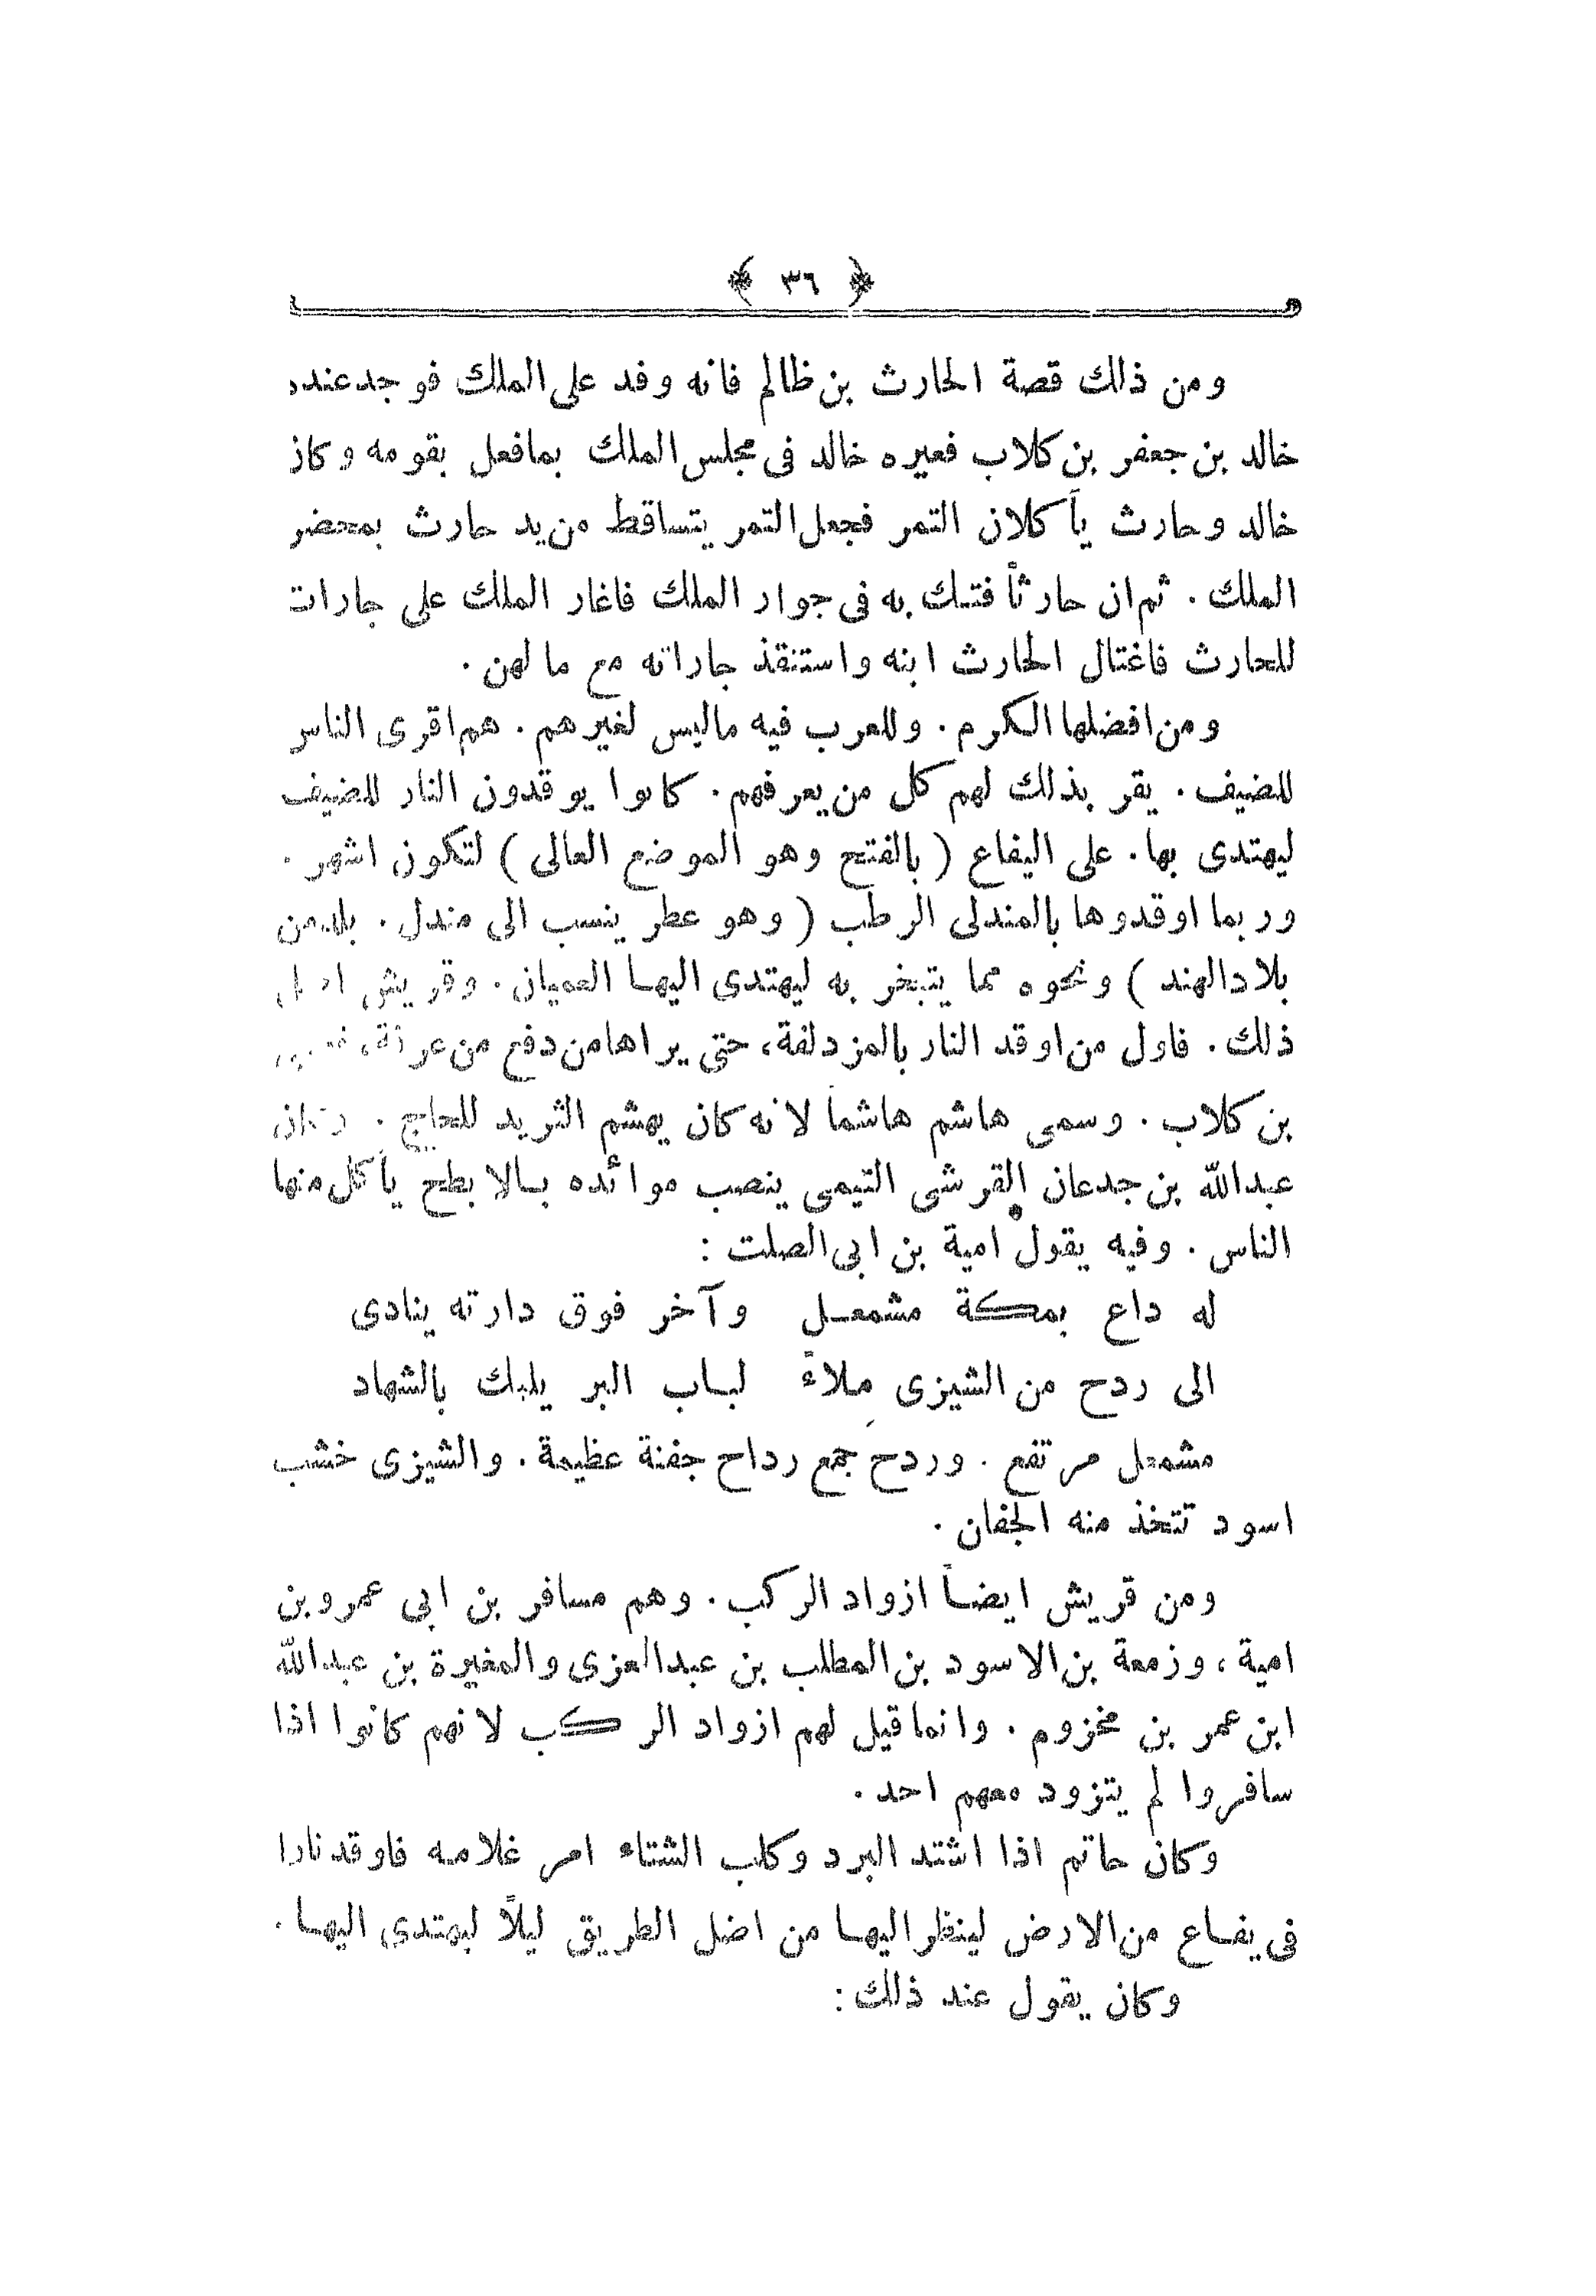 ﴿ ٣٦ ﴾
ومن ذلك قصة الحارث بن ظالم فانه وفد على الملك فوجد عنده
خالد بن جعفر بن كلاب فعيره خالد فى مجلس الملك بمافعل بقومه وكان
خالد وحارث يأكلان التمر فجعل التمر يتساقط من يد حارث بمحضر
الملك . ثم ان حارثاً فتك به فى جوار الملك فاغار الملك على جارات
للحارث فاغتال الحارث ابنه واستنقذ جاراته مع ما لهن .
ومن افضلها الكرم . وللعرب فيه ماليس لغيرهم . هم اقرى الناس
للضيف . يقر بذلك لهم كل من يعرفهم . كانوا يوقدون النار للضيف
ليهتدى بها . على اليفاع ( بالفتح وهو الموضع العالى ) لتكون اشهر .
وربما اوقدوها بالمندلى الرطب ( وهو عطر ينسب الى مندل . بلد من
بلاد الهند ) ونحوه مما يتبخر به ليهتدى اليها العميان . وقريش
ذلك . فاول من اوقد النار بالمزدلفة، حتى يراها من دفع من عرفة،
بن كلاب . وسمى هاشم هاشماً لانه كان يهشم الثريد للحاج . وكان
عبدالله بن جدعان القرشى التيمى ينصب موائده بالابطح يأكل منها
الناس . وفيه يقول امية بن ابى الصلت :
له داع بمكة مشمعل وآخر فوق دارته ينادى
الى ردح من الشيزى ملاءً لباب البر يلبك بالشهاد
مشمعل مرتفع . وردح جمع رداح جفنة عظيمة . والشيزى خشب
اسود تتخذ منه الجفان .
ومن قريش ايضاً ازواد الركب . وهم مسافر بن ابى عمرو بن
امية ، وزمعة بن الاسود بن المطلب بن عبدالعزى والمغيرة بن عبدالله
ابن عمر بن مخزوم . وانما قيل لهم ازواد الركب لانهم كانوا اذا
سافروا لم يتزود معهم احد .
وكان حاتم اذا اشتد البرد وكلب الشتاء امر غلامه فاوقد نارا
فى يفاع من الارض لينظر اليها من اضل الطريق ليلاً ليهتدى اليها .
وكان يقول عند ذلك :